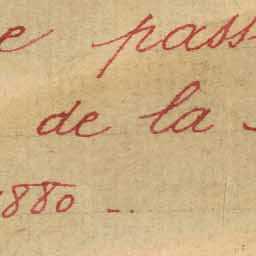 e pass
de la
1880 --